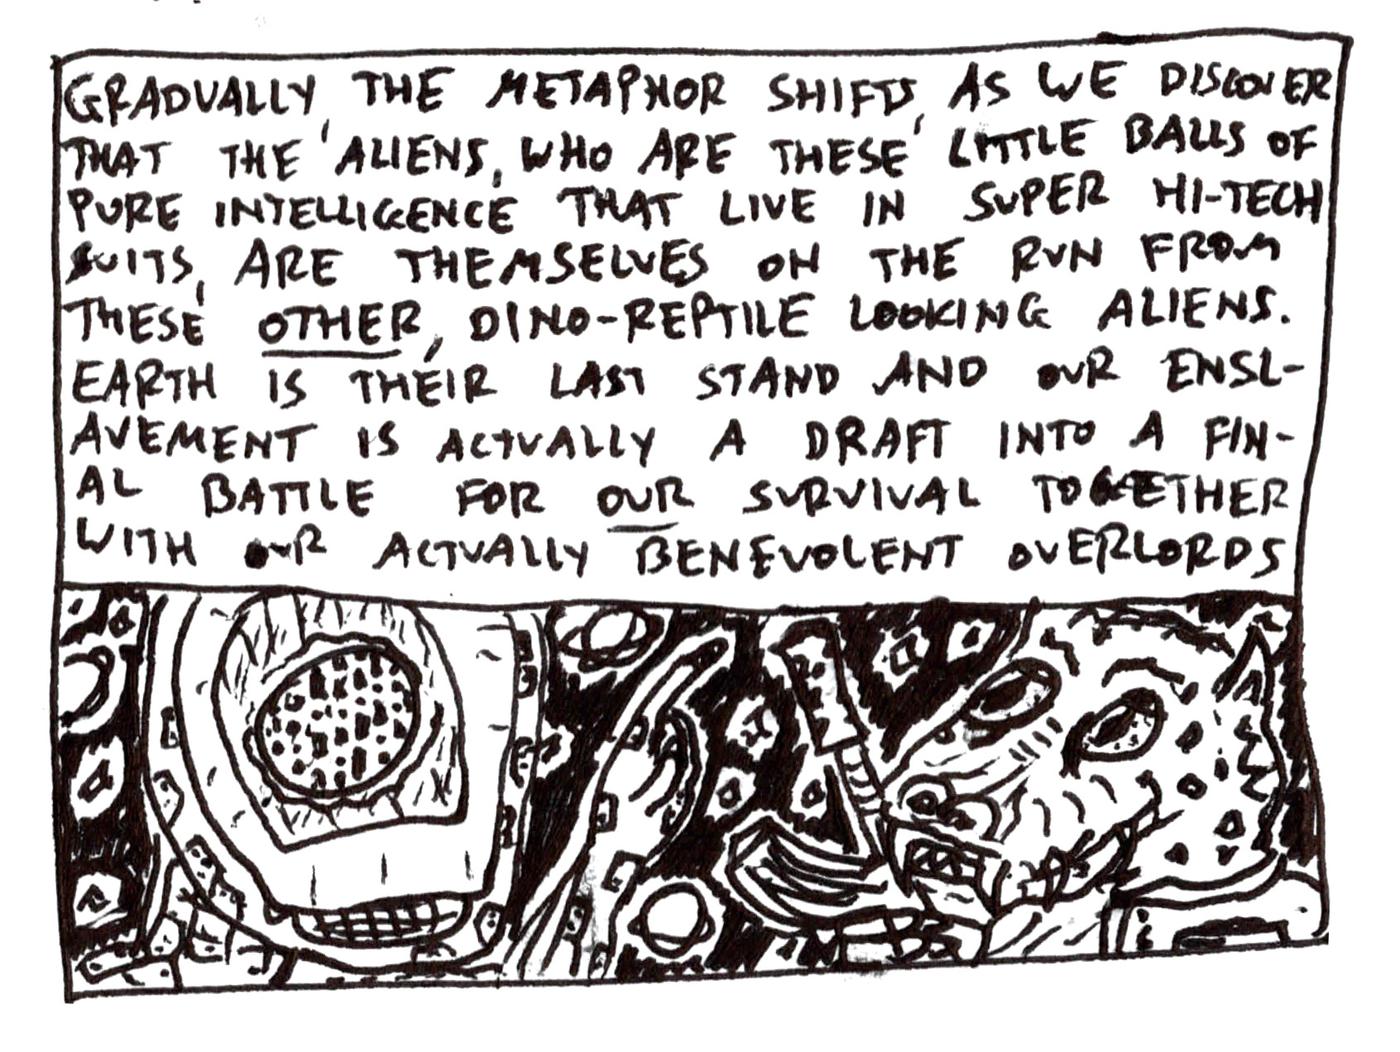 GRADUALLY, THE METAPHOR SHIFTS, AS WE DISCOVER
THAT THE ALIENS, WHO ARE THESE LITTLE BALLS OF
PURE INTELLIGENCE THAT LIVE IN SUPER HI-TECH
SUITS, ARE THEMSELVES ON THE RUN FROM
THESE OTHER, DINO-REPTILE LOOKING ALIENS.
EARTH IS THEIR LAST STAND AND OUR ENSL-
AVEMENT IS ACTUALLY A DRAFT INTO A FIN-
AL BATTLE FOR OUR SURVIVAL TOGETHER
WITH OUR ACTUALLY BENEVOLENT OVERLORDS